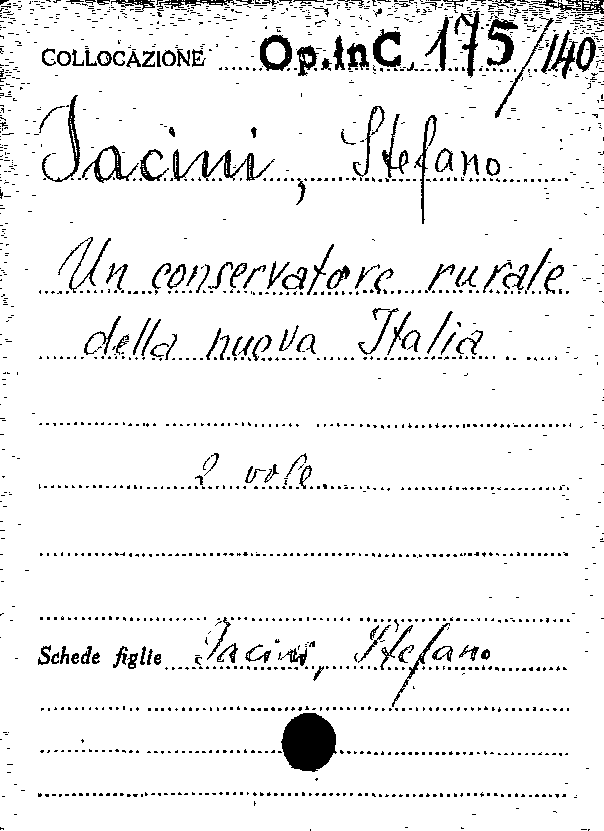 COLLOCAZIONE Op.InC 175/140
Jacini, Stefano
Un conservatore rurale
della nuova Italia
2 voll.
Schede figlie Jacini, Stefano